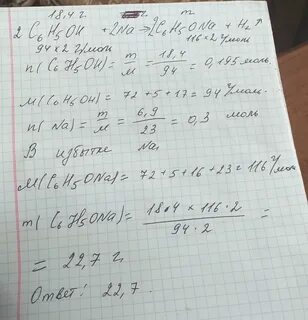 18,4 г m
2 C6H5OH + 2Na → 2C6H5ONa + H2↑
94×2 г/моль 116×2 г/моль
n(C6H5OH) = m/M = 18,4/94 = 0,195 моль
M(C6H5OH) = 72+5+17 = 94 г/моль.
n(Na) = m/M = 6,9/23 = 0,3 моль
В избытке Na
M(C6H5ONa) = 72+5+16+23 = 116 г/моль
m(C6H5ONa) = 18.4 × 116·2 / 94·2 =
= 22,7 г.
Ответ: 22,7.